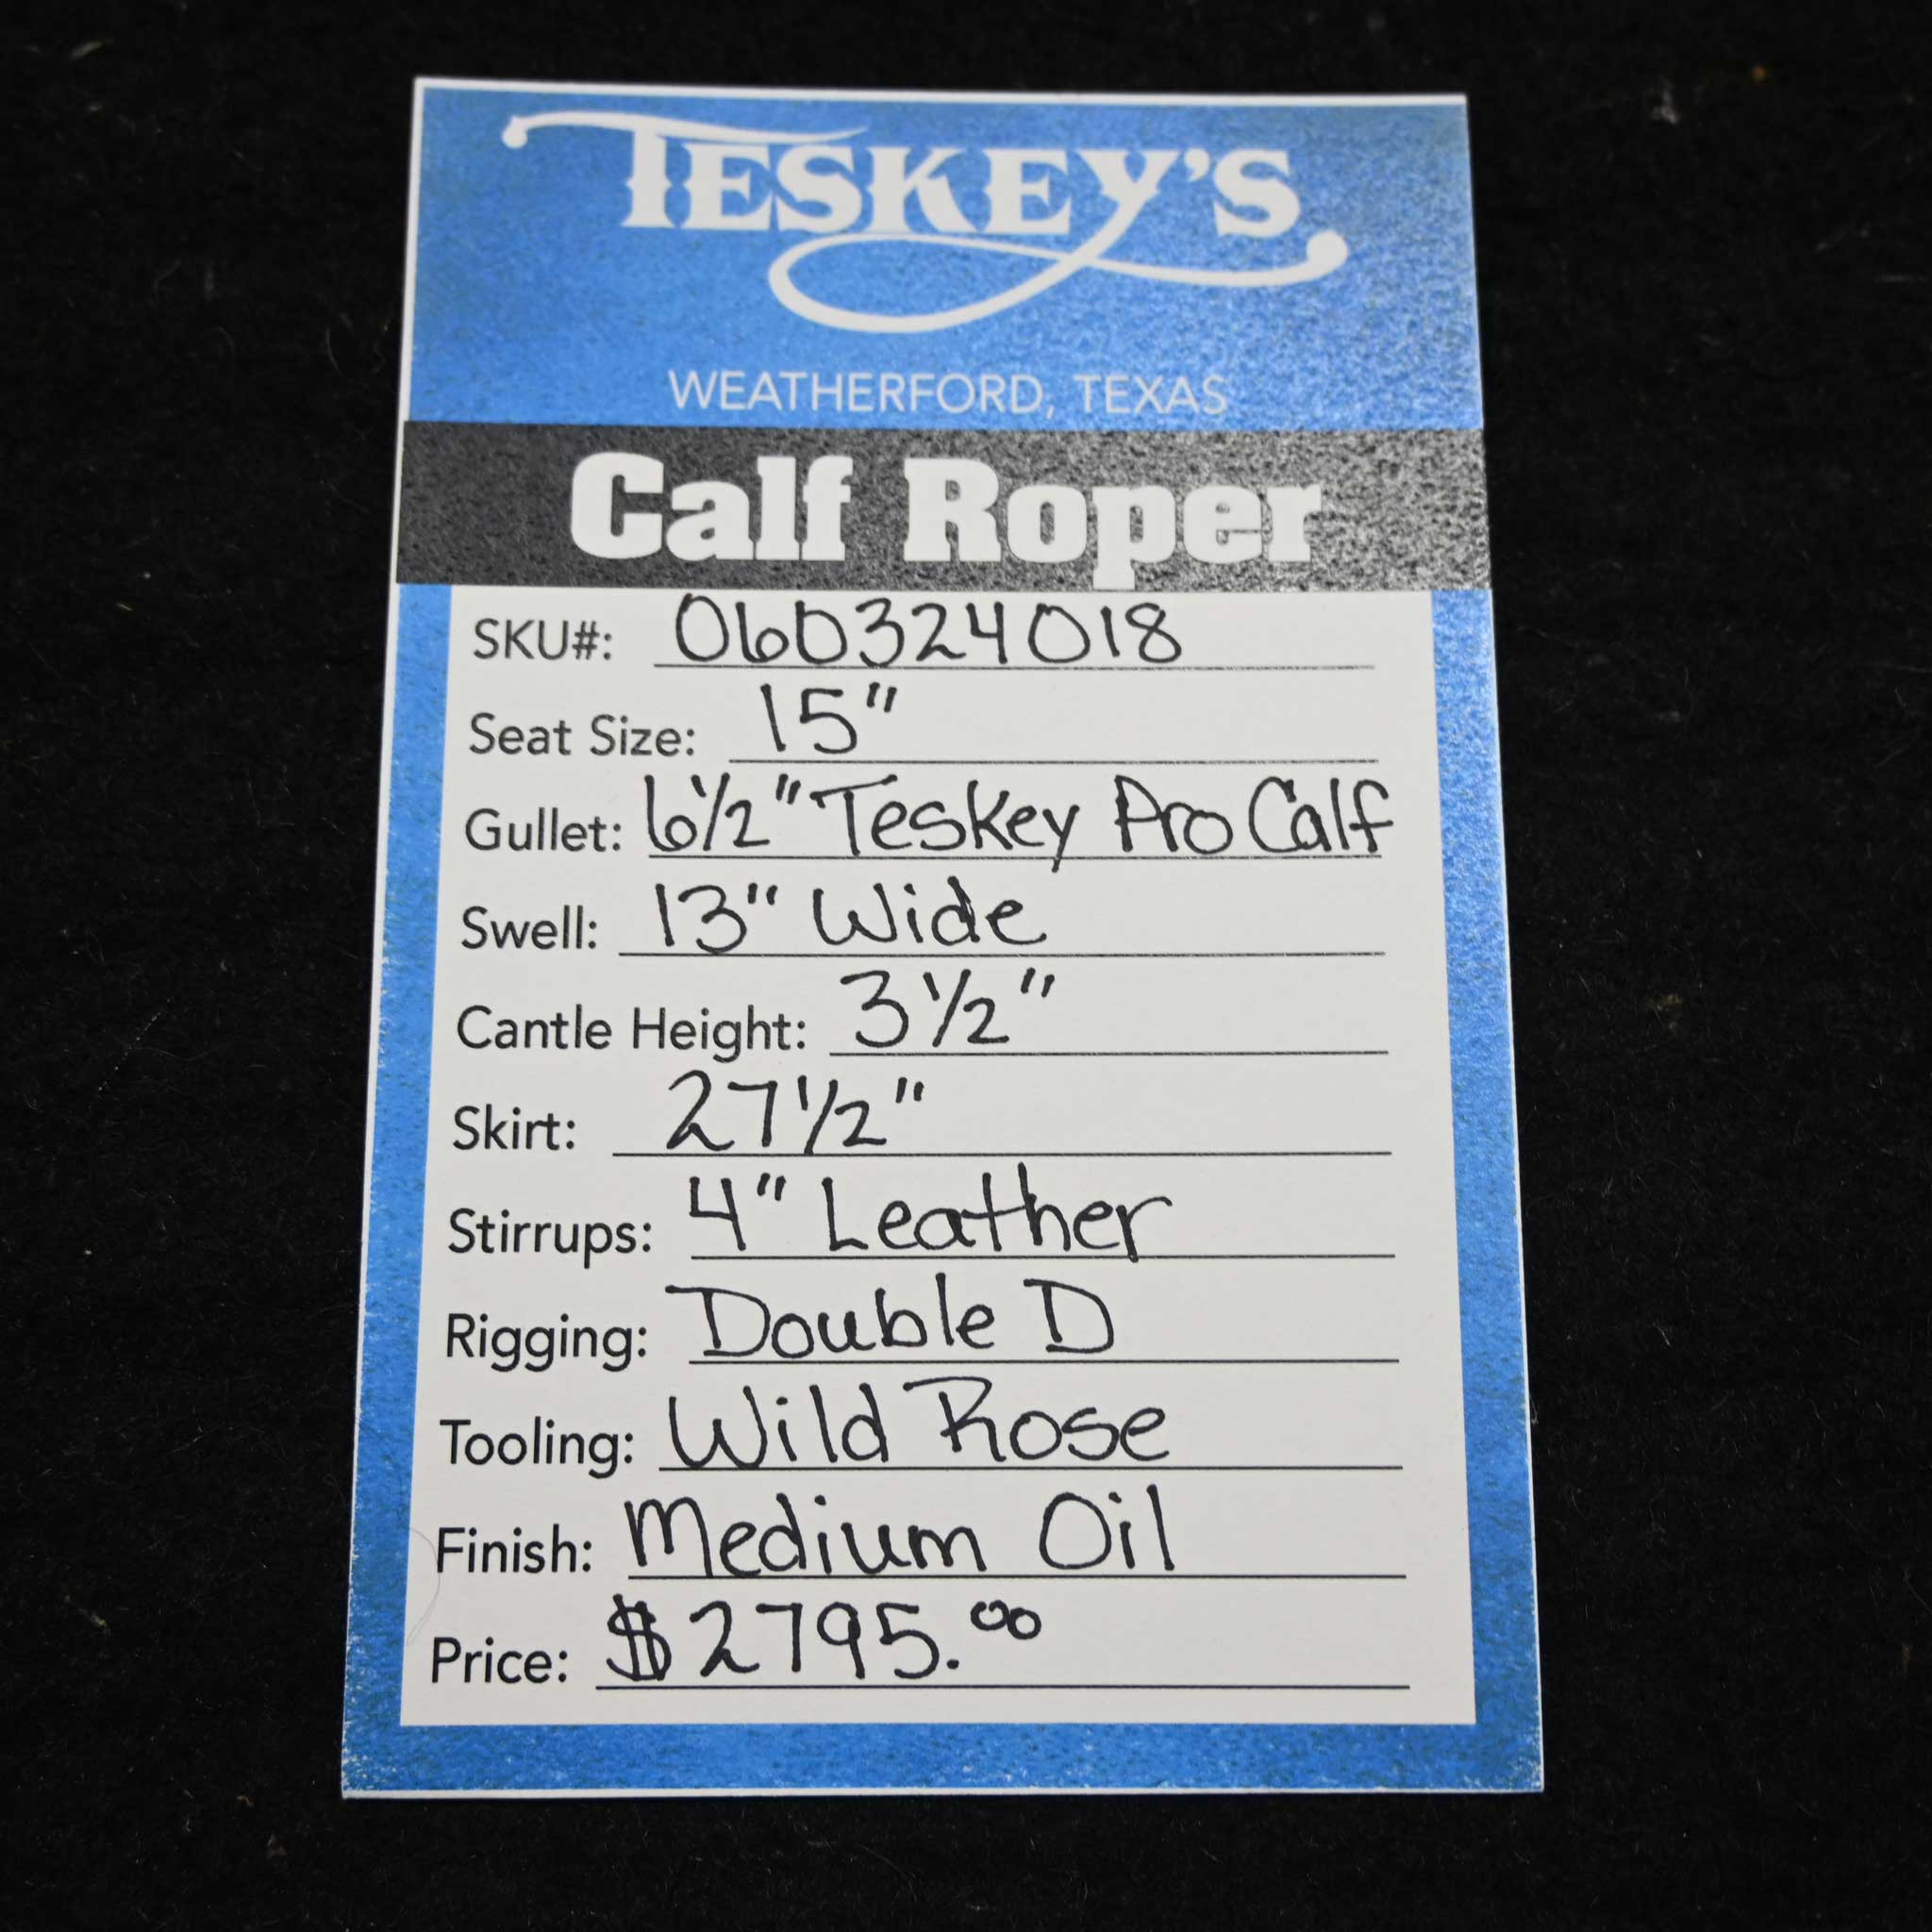 TESKEY'S
WEATHERFORD, TEXAS
Calf Roper
SKU#: 060324018
Seat Size: 15"
Gullet: 6 1/2" Teskey Pro Calf
Swell: 13" Wide
Cantle Height: 3 1/2"
Skirt: 27 1/2"
Stirrups: 4" Leather
Rigging: Double D
Tooling: Wild Rose
Finish: Medium Oil
Price: $2795.00